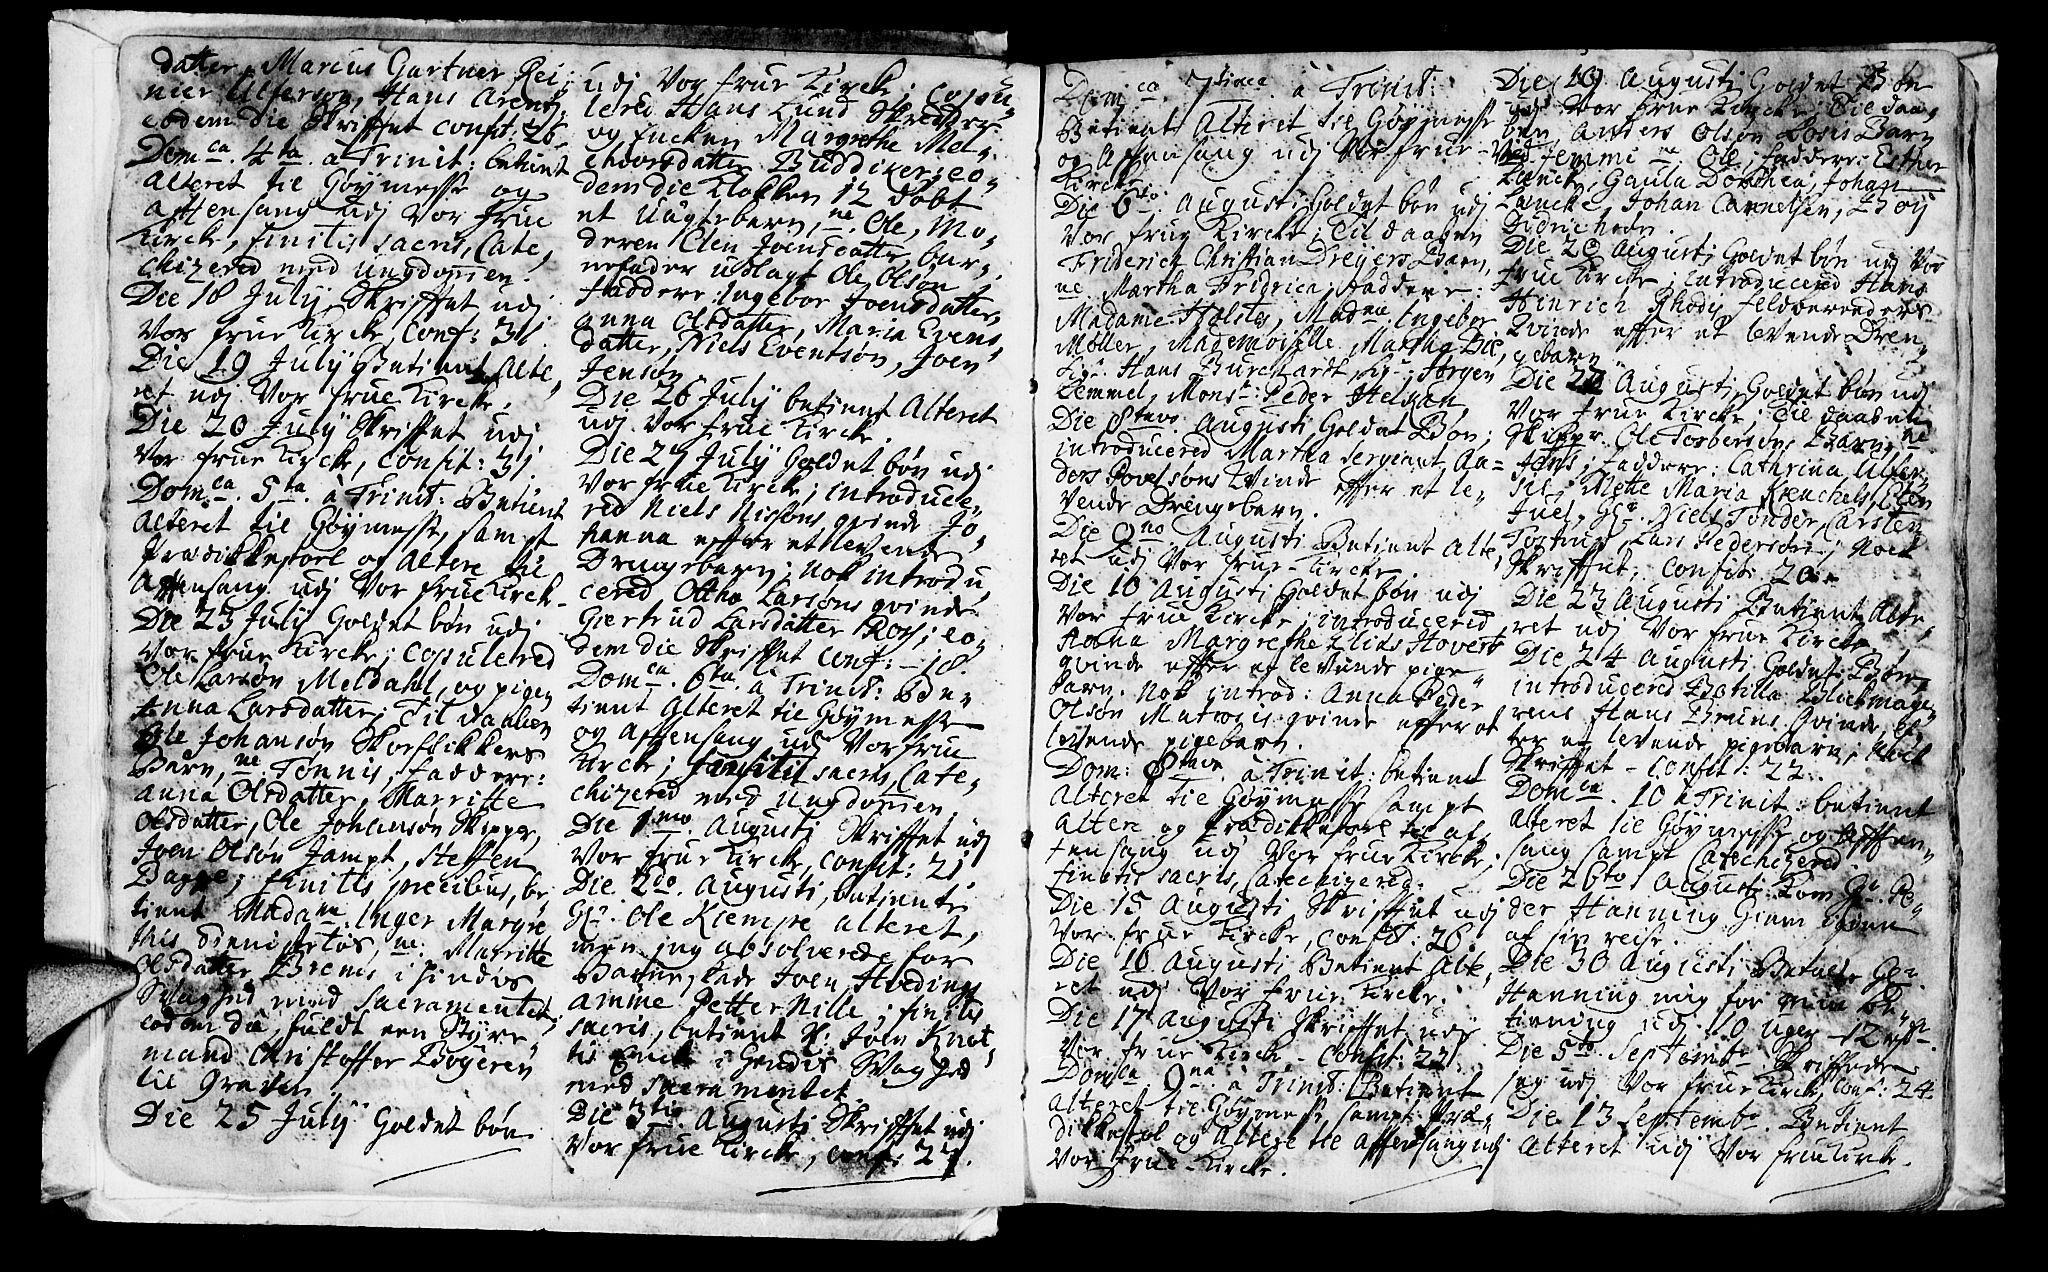 datter, Marcus Gartner Rei,
nier Alferson, Hans Arentz;
eodem die Skrifftet confit: 26.
Dom:ca 4ta à Trinit: betient
Alteret til Høymesse og
afftensang udj Vor Frue
Kircke, finitis sacris, Cate,
chizered med ungdommen.
Die 18 July Skrifftet udj
Vor frue Kircke, Conf: 31.
Die 19 July Betient Alte,
ret udj Vor frue Kircke.
Die 20 July Skrifftet udj
Vor frue Kircke, Confit: 31
Dom:ca 5ta à Trinit: Betient
Alteret til Høymesse, sampt
Prædickestoel og Altere til
Afftensang udj Vor frue Kirck.
Die 23 July Holdet bøn udj
Vor frue Kircke; Copulered
Ole Larsøn Meldahl, og pigen
Anna Larsdatter; Til daaben
Ole Johansøn Skoeflickers
Barn, ne Tønnis, faddere:
Anna Olsdatter, Marritte
Olsdatter, Ole Johansøn Skipper,
Joen Olsøn Jampt, Steffen
Bagge; finitis precibus, be,
tient Madame Inger Margre
this tienistetøs, ne. Marritte
Olsdatter Brems i hindes
Svaghed med Sacramentet;
eodem die, fuldt een Byre,
mand Christoffer Bøgeren
til Graven.
Die 25 July Holdet bøn
udj Vor frue Kircke; Copu,
lered Hans Lund Skredder
og Encken Margrethe Mel,
chiorsdatter Buddiker; eo,
dem die Klokken 12 døbt
et Uægtebarn, ne. Ole, Mo,
deren Elen Joensdatter, bar,
nefader udlagt Ole Olsøn,
faddere: Ingebor Joensdatter,
Anna Olsdatter, Maria Evens,
datter, Niels Eventsøn, Joen
Jensøn.
Die 26 July betient Alteret
udj Vor frue Kircke.
Die 27 July Holdet bøn udj
Vor frue Kircke; introduce,
red Niels Nissøns qvinde Jo,
hanna effter et levende
Drengebarn; Nok introdu,
cered Ottho Larsøns qvinde
Giertrud Larsdatter Roy; eo,
dem die Skrifftet Conf: 18.
Dom:ca 6ta à Trinit: Be,
tient Alteret til Høymesse
og Afftensang udj Vor frue
Kircke; finitis sacris, Cate,
chizered med Ungdommen.
Die 1mo Augusti Skrifftet udj
Vor frue Kircke, confit: 21
Die 2do Augusti, betiente
Hr. Ole Kiempe alteret,
men jeg absolverede for
Barne, lade Joen Hvedings
amme Petternille; finitis
sacris, betient Joen Knut,
tis Encke i Hendis Svaghed
med Sacramentet.
Die 3tio Augusti Skrifftet udj
Vor frue Kircke, conf: 27.
Dom:ca 7tima à Trinit:
Betient Alteret til Høymesse
og Afftensang udj Vor frue
Kircke.
Die 6to Augusti Holdet bøn udj
Vor frue Kircke; Til daaben
Friderich Christian Dreyers Barn,
ne Martha Fridrica, faddere:
Madame Holste, Madme Ingebor
Møller, Mademoiselle Martha
Hans Burchardt, Jørgen
Lemmel, Monsr: Peder Helgen.
Die 8tavo Augusti Holdet Bøn;
introducered Martha Sergeant, An=
ders Povelsøns Kvinde effter et le,
vende Drengebarn.
Die 9no Augusti Betient Alte,
ret udj Vor frue Kircke.
Die 10 Augusti Holdet bøn udj
Vor frue Kircke; introducered
Anna Margrethe Elias Hoverts
qvinde effter et levende pige,
barn. Nok introd: Anna Peder
Olsøn Matrosis qvinde effter et
levende pigebarn.
Dom: 8tava à Trinit: betient
Alteret til Høymesse sampt
Altere og Prædickestoel til af,
tensang udj Vor frue Kircke;
finitis sacris, Catechizered.
Die 15 Augusti Skrifftet udj
Vor frue Kircke, confit: 26.
Die 16 Augusti Betient Alte,
ret udj Vor frue Kircke.
Die 17 Augusti Skrifftet udj
Vor frue Kircke - Confit: 22.
Dom:ca 9na à Trinit: Betient
Alteret til Høymesse sampt Præ,
dickestoel og Altere til afftensang udj
Vor frue Kircke.
Die 19 Augusti Holdet Bøn
udj Vor frue Kircke; Til daa,
ben Anders Olsøn Barn
Ved Hemmi ne. Ole, faddere: Esther
Lanck, Gaula Dorthea, Johan
Lanck, Johan Cornelsen, Boy
Diderichsen.
Die 20 Augusti Holdet bøn udj Vor
frue Kircke; introducered Hans
Hinrich Feldberenders
Qvinde effter et levende Dren,
gebarn.
Die 22 Augusti Holdet bøn udj
Vor frue Kircke; Til daaben
Skipper Ole Torbersøns Barn, ne
Jens; faddere: Cathrina
Mette Maria Kreuchels, Elen
Juel, Hr. Niels Tønder, Carsten
Tostrup, Lars Pedersøn; Nock
Skrifftet, confit: 20.
Die 23 Augusti Betient Alte,
ret udj Vor frue Kircke.
Die 24 Augusti Holdet Bøn,
introducered Botilla Blockmage,
rens Hans Bruns Qvinde, ef,
ter et levende pigebarn; Nock
Skrifftet - confit: 22.
Dom:ca 10 à Trinit: betient
Alteret til Høymesse og Afften,
sang sampt Catechizered.
Die 26to Augusti Kom Hr. Pe,
der Hanning Hiem igien
af sin reise.
Die 30 Augusti Betalte Hr.
Hanning mig for min be,
tiening udj 10 uger - 12 rd.
Die 5to Septembr Skrifftede
jeg udj Vor frue Kircke, conf: 24.
Die 13 Septembr. Betient
Alteret udj Vor frue Kircke.